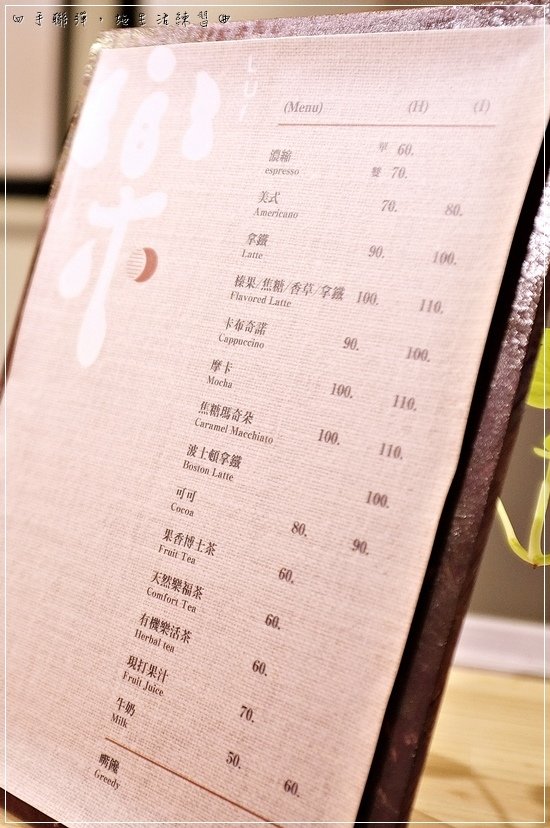 四手聯彈，她生活練習曲
(Menu) (H) (I)
濃縮 單 60.
espresso 雙 70.
美式 70. 80.
Americano
拿鐵 90. 100.
Latte
榛果/焦糖/香草/拿鐵 100. 110.
Flavored Latte
卡布奇諾 90. 100.
Cappuccino
摩卡 100. 110.
Mocha
焦糖瑪奇朵 100. 110.
Caramel Macchiato
波士頓拿鐵 100.
Boston Latte
可可 80. 90.
Cocoa
果香博士茶 60.
Fruit Tea
天然樂福茶 60.
Comfort Tea
有機樂活茶 60.
Herbal tea
現打果汁 70.
Fruit Juice
牛奶 50. 60.
Milk
嘴饞
Greedy